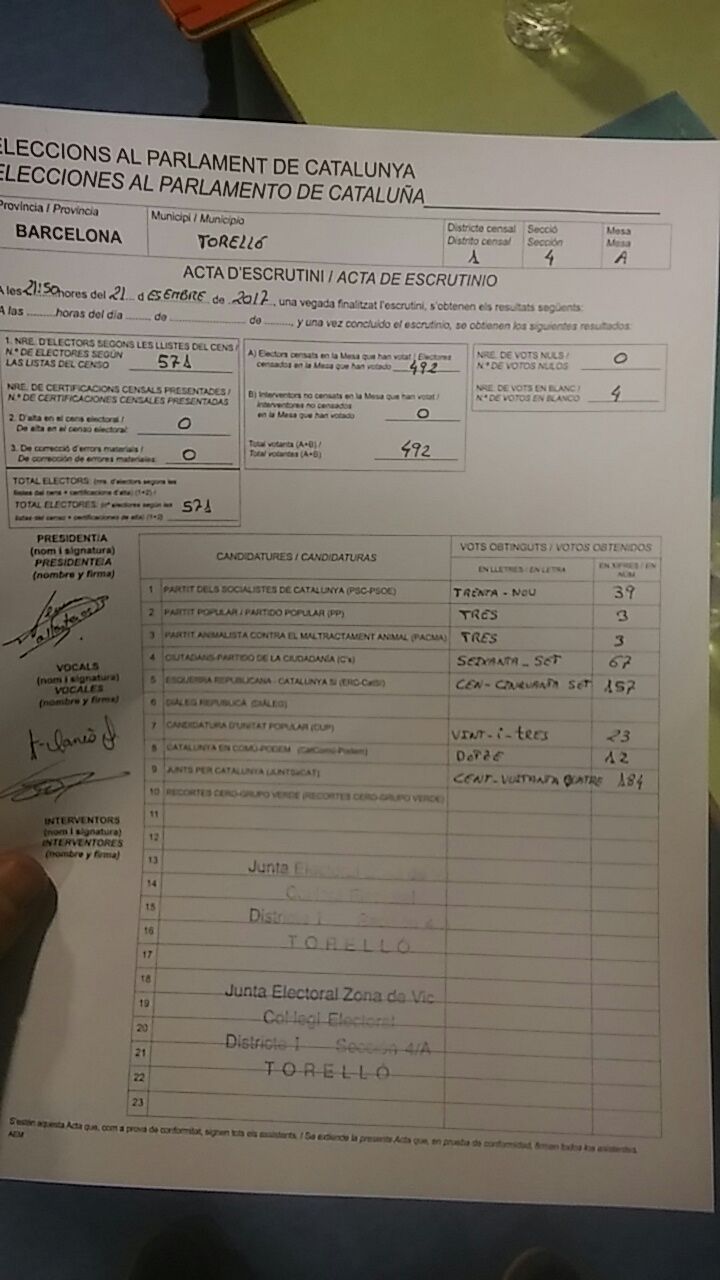 ELECCIONS AL PARLAMENT DE CATALUNYA
ELECCIONES AL PARLAMENTO DE CATALUÑA
Província / Provincia
BARCELONA
Municipi / Municipio
TORELLÓ
Districte censal
Distrito censal
1
Secció
Sección
4
Mesa
Mesa
A
ACTA D'ESCRUTINI / ACTA DE ESCRUTINIO
A les 21:50 hores del 21 d ESEMBRE de 2017, una vegada finalitzat l'escrutini, s'obtenen els resultats següents:
A las ........horas del día ....... de ........................... de ........, y una vez concluido el escrutinio, se obtienen los siguientes resultados:
1. NRE. D'ELECTORS SEGONS LES LLISTES DEL CENS /
N.º DE ELECTORES SEGÚN
LAS LISTAS DEL CENSO 571
NRE. DE CERTIFICACIONS CENSALS PRESENTADES /
N.º DE CERTIFICACIONES CENSALES PRESENTADAS
2. D'alta en el cens electoral /
De alta en el censo electoral: 0
3. De correcció d'errors materials /
De corrección de errores materiales: 0
TOTAL ELECTORS: (nre. d'electors segons les
llistes del cens + certificacions d'alta) (1+2) /
TOTAL ELECTORES: (nº electores según las 571
listas del censo + certificaciones de alta) (1+2)
A) Electors censats en la Mesa que han votat / Electores
censados en la Mesa que han votado 492
B) Interventors no censats en la Mesa que han votat /
Interventores no censados
en la Mesa que han votado 0
Total votants (A+B) /
Total votantes (A+B) 492
NRE. DE VOTS NULS /
N.º DE VOTOS NULOS 0
NRE. DE VOTS EN BLANC /
N.º DE VOTOS EN BLANCO 4
PRESIDENT/A
(nom i signatura)
PRESIDENTE/A
(nombre y firma)
VOCALS
(nom i signatura)
VOCALES
(nombre y firma)
INTERVENTORS
(nom i signatura)
INTERVENTORES
(nombre y firma)
CANDIDATURES / CANDIDATURAS
VOTS OBTINGUTS / VOTOS OBTENIDOS
EN LLETRES / EN LETRA
EN XIFRES / EN NÚM.
1 PARTIT DELS SOCIALISTES DE CATALUNYA (PSC-PSOE) TRENTA-NOU 39
2 PARTIT POPULAR / PARTIDO POPULAR (PP) TRES 3
3 PARTIT ANIMALISTA CONTRA EL MALTRACTAMENT ANIMAL (PACMA) TRES 3
4 CIUTADANS-PARTIDO DE LA CIUDADANÍA (C's) SEIXANTA-SET 67
5 ESQUERRA REPUBLICANA - CATALUNYA SÍ (ERC-CatSí) CEN-CINQUANTA SET 157
6 DIÀLEG REPUBLICÀ (DIÀLEG)
7 CANDIDATURA D'UNITAT POPULAR (CUP) VINT-I-TRES 23
8 CATALUNYA EN COMÚ-PODEM (CatComú-Podem) DOTZE 12
9 JUNTS PER CATALUNYA (JUNTSxCAT) CENT-VUITANTA QUATRE 184
10 RECORTES CERO-GRUPO VERDE (RECORTES CERO-GRUPO VERDE)
11
12
13
14
15
16
17
18
19
20
21
22
23
Junta Electoral Zona de Vic
Col·legi Electoral
Districte 1 Secció 4/A
TORELLÓ
Junta Electoral Zona de Vic
Col·legi Electoral
Districte 1 Sección 4/A
TORELLÓ
S'estén aquesta Acta que, com a prova de conformitat, signen tots els assistents. / Se extiende la presente Acta que, en prueba de conformidad, firman todos los asistentes.
AEM